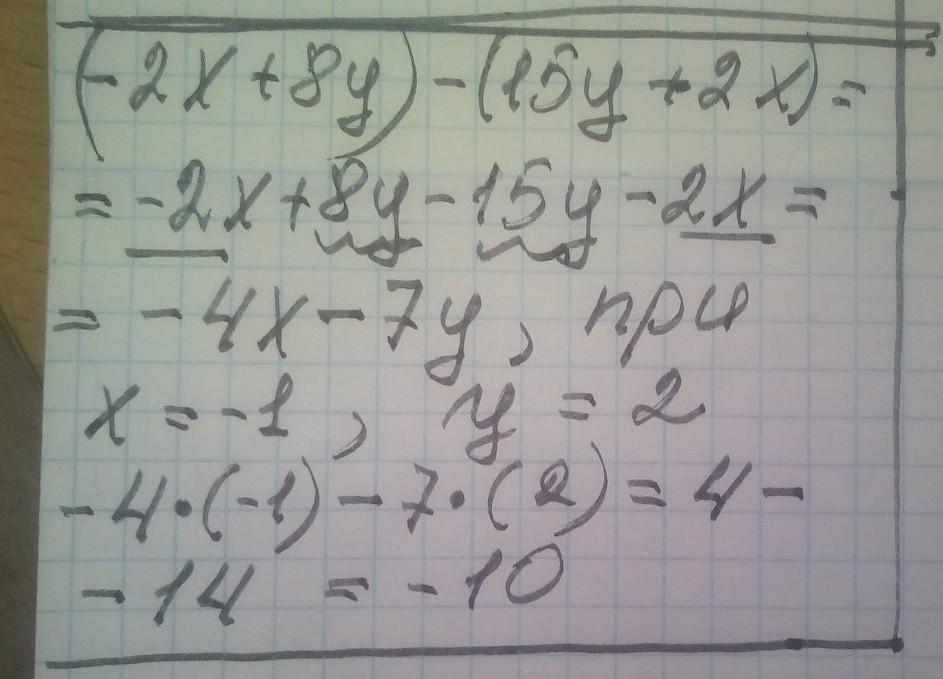 (-2x+8y)-(15y+2x)=
=-2x+8y-15y-2x=
=-4x-7y, при
x=-1, y=2
-4·(-1)-7·(2)=4-
-14=-10